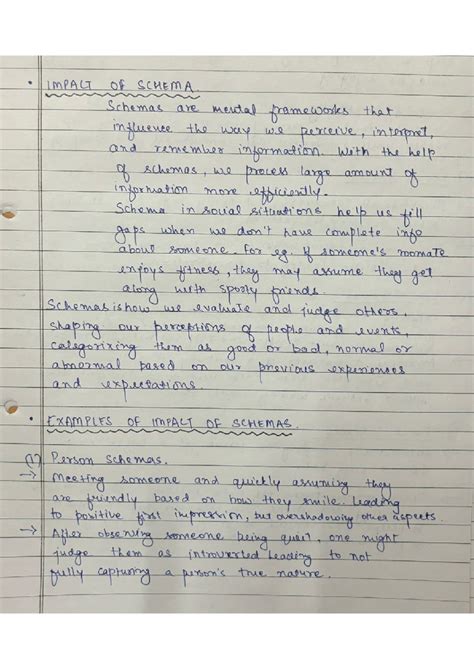 • IMPACT OF SCHEMA
Schemas are mental frameworks that
influence the way we perceive, interpret,
and remember information. With the help
of schemas, we process large amount of
information more efficiently.
Schema in social situations help us fill
gaps when we don't have complete info
about someone. for eg. if someone's momate
enjoys fitness, they may assume they get
along with sporty friends.
Schemas is how we evaluate and judge others,
shaping our perceptions of people and events,
categorizing them as good or bad, normal or
abnormal based on our previous experiences
and expectations.
• EXAMPLES OF IMPACT OF SCHEMAS.
(1) Person Schemas.
→ Meeting someone and quickly assuming they
are friendly based on how they smile. leading
to positive first impression, but overshadowing other aspects.
→ After observing someone being quiet, one might
judge them as introverted leading to not
fully capturing a person's true nature.